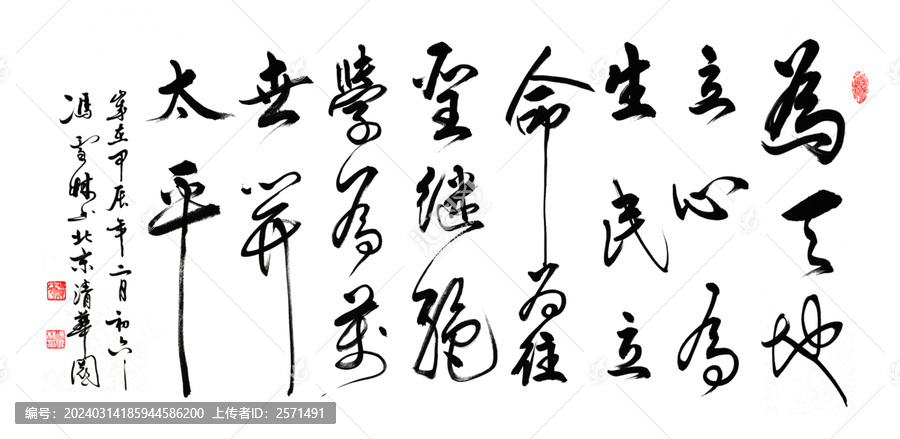 為天地
立心為
生民立
命為往
聖继绝
學為萬
世开
太平
歲在甲辰年二月初六
馮雪 北京清華園
编号：20240314185944586200 上传者ID：2571491